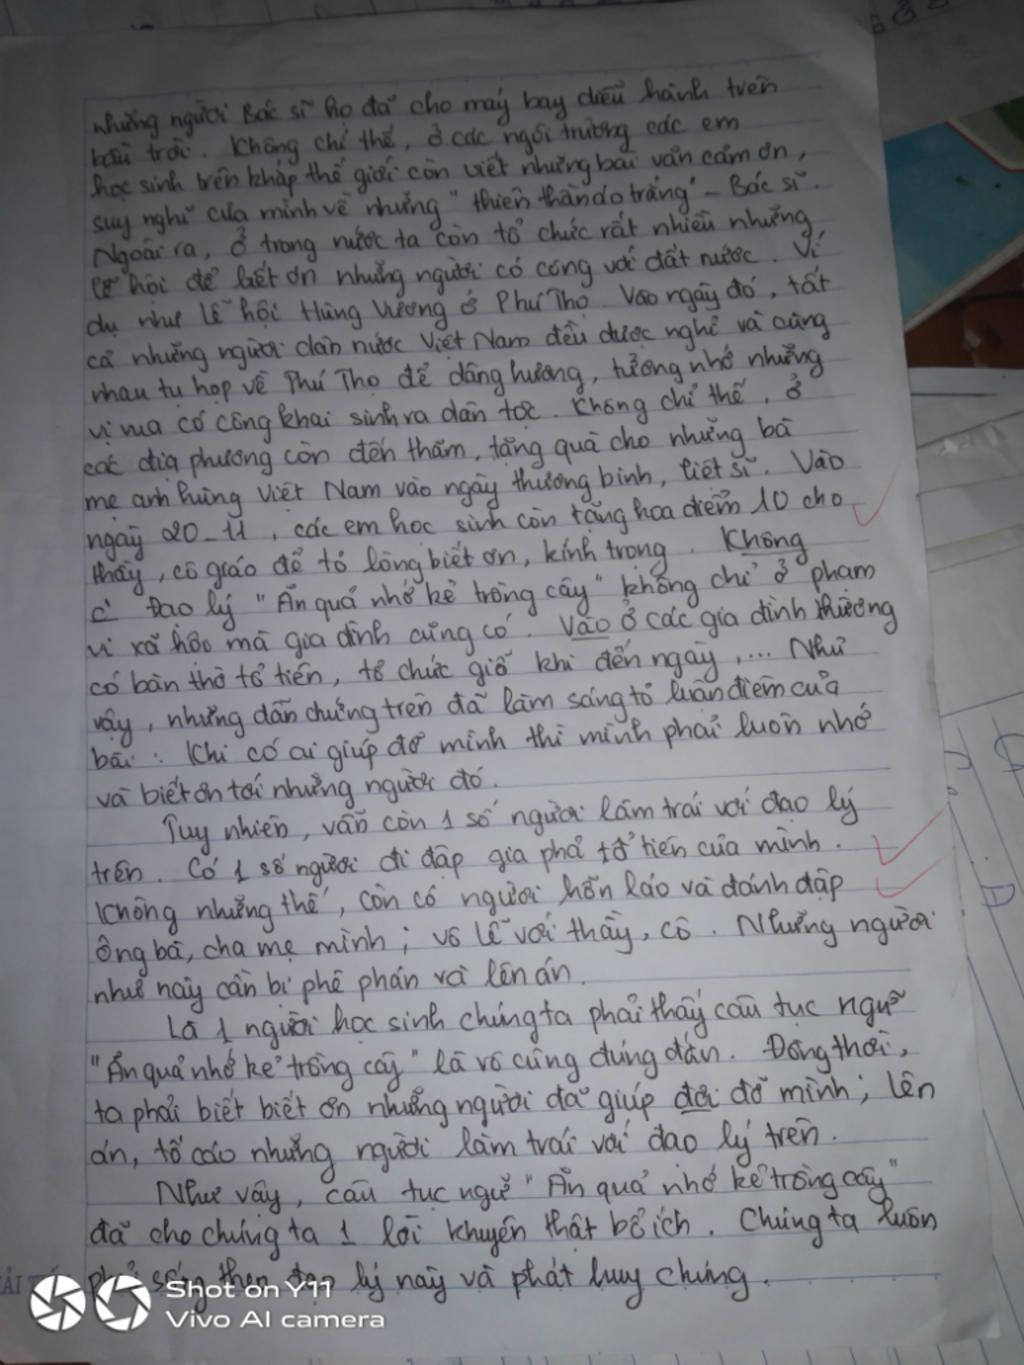 những người Bác sĩ họ đã cho máy bay diễu hành trên
bầu trời. Không chỉ thế, ở các ngôi trường các em
học sinh trên khắp thế giới còn viết những bài văn cảm ơn,
suy nghĩ của mình về những "thiên thần áo trắng" - Bác sĩ.
Ngoài ra, ở trong nước ta còn tổ chức rất nhiều những
lễ hội để biết ơn những người có công với đất nước. Ví
dụ như lễ hội Hùng Vương ở Phú Thọ. Vào ngày đó, tất
cả những người dân nước Việt Nam đều được nghỉ và cùng
nhau tụ họp về Phú Thọ để dâng hương, tưởng nhớ những
vị vua có công khai sinh ra dân tộc. Không chỉ thế, ở
các địa phương còn đến thăm, tặng quà cho những bà
mẹ anh hùng Việt Nam vào ngày thương binh, liệt sĩ. Vào
ngày 20-11, các em học sinh còn tặng hoa điểm 10 cho
thầy, cô giáo để tỏ lòng biết ơn, kính trọng. Không
Đạo lý "Ăn quả nhớ kẻ trồng cây" không chỉ ở phạm
vi xã hội mà gia đình cũng có. Vào ở các gia đình thường
có bàn thờ tổ tiên, tổ chức giỗ khi đến ngày,... Như
vậy, những dẫn chứng trên đã làm sáng tỏ luận điểm của
bài: Khi có ai giúp đỡ mình thì mình phải luôn nhớ
và biết ơn tới những người đó.
Tuy nhiên, vẫn còn 1 số người làm trái với đạo lý
trên. Có 1 số người đi đập gia phả tổ tiên của mình.
Không những thế, còn có người hỗn láo và đánh đập
ông bà, cha mẹ mình; vô lễ với thầy, cô. Những người
như này cần bị phê phán và lên án.
Là 1 người học sinh chúng ta phải thấy câu tục ngữ
"Ăn quả nhớ kẻ trồng cây" là vô cùng đúng đắn. Đồng thời,
ta phải biết biết ơn những người đã giúp đỡ mình; lên
án, tố cáo những người làm trái với đạo lý trên.
Như vậy, câu tục ngữ "Ăn quả nhớ kẻ trồng cây"
đã cho chúng ta 1 lời khuyên thật bổ ích. Chúng ta luôn
phải sống theo đạo lý này và phát huy chúng.
Shot on Y11
Vivo AI camera